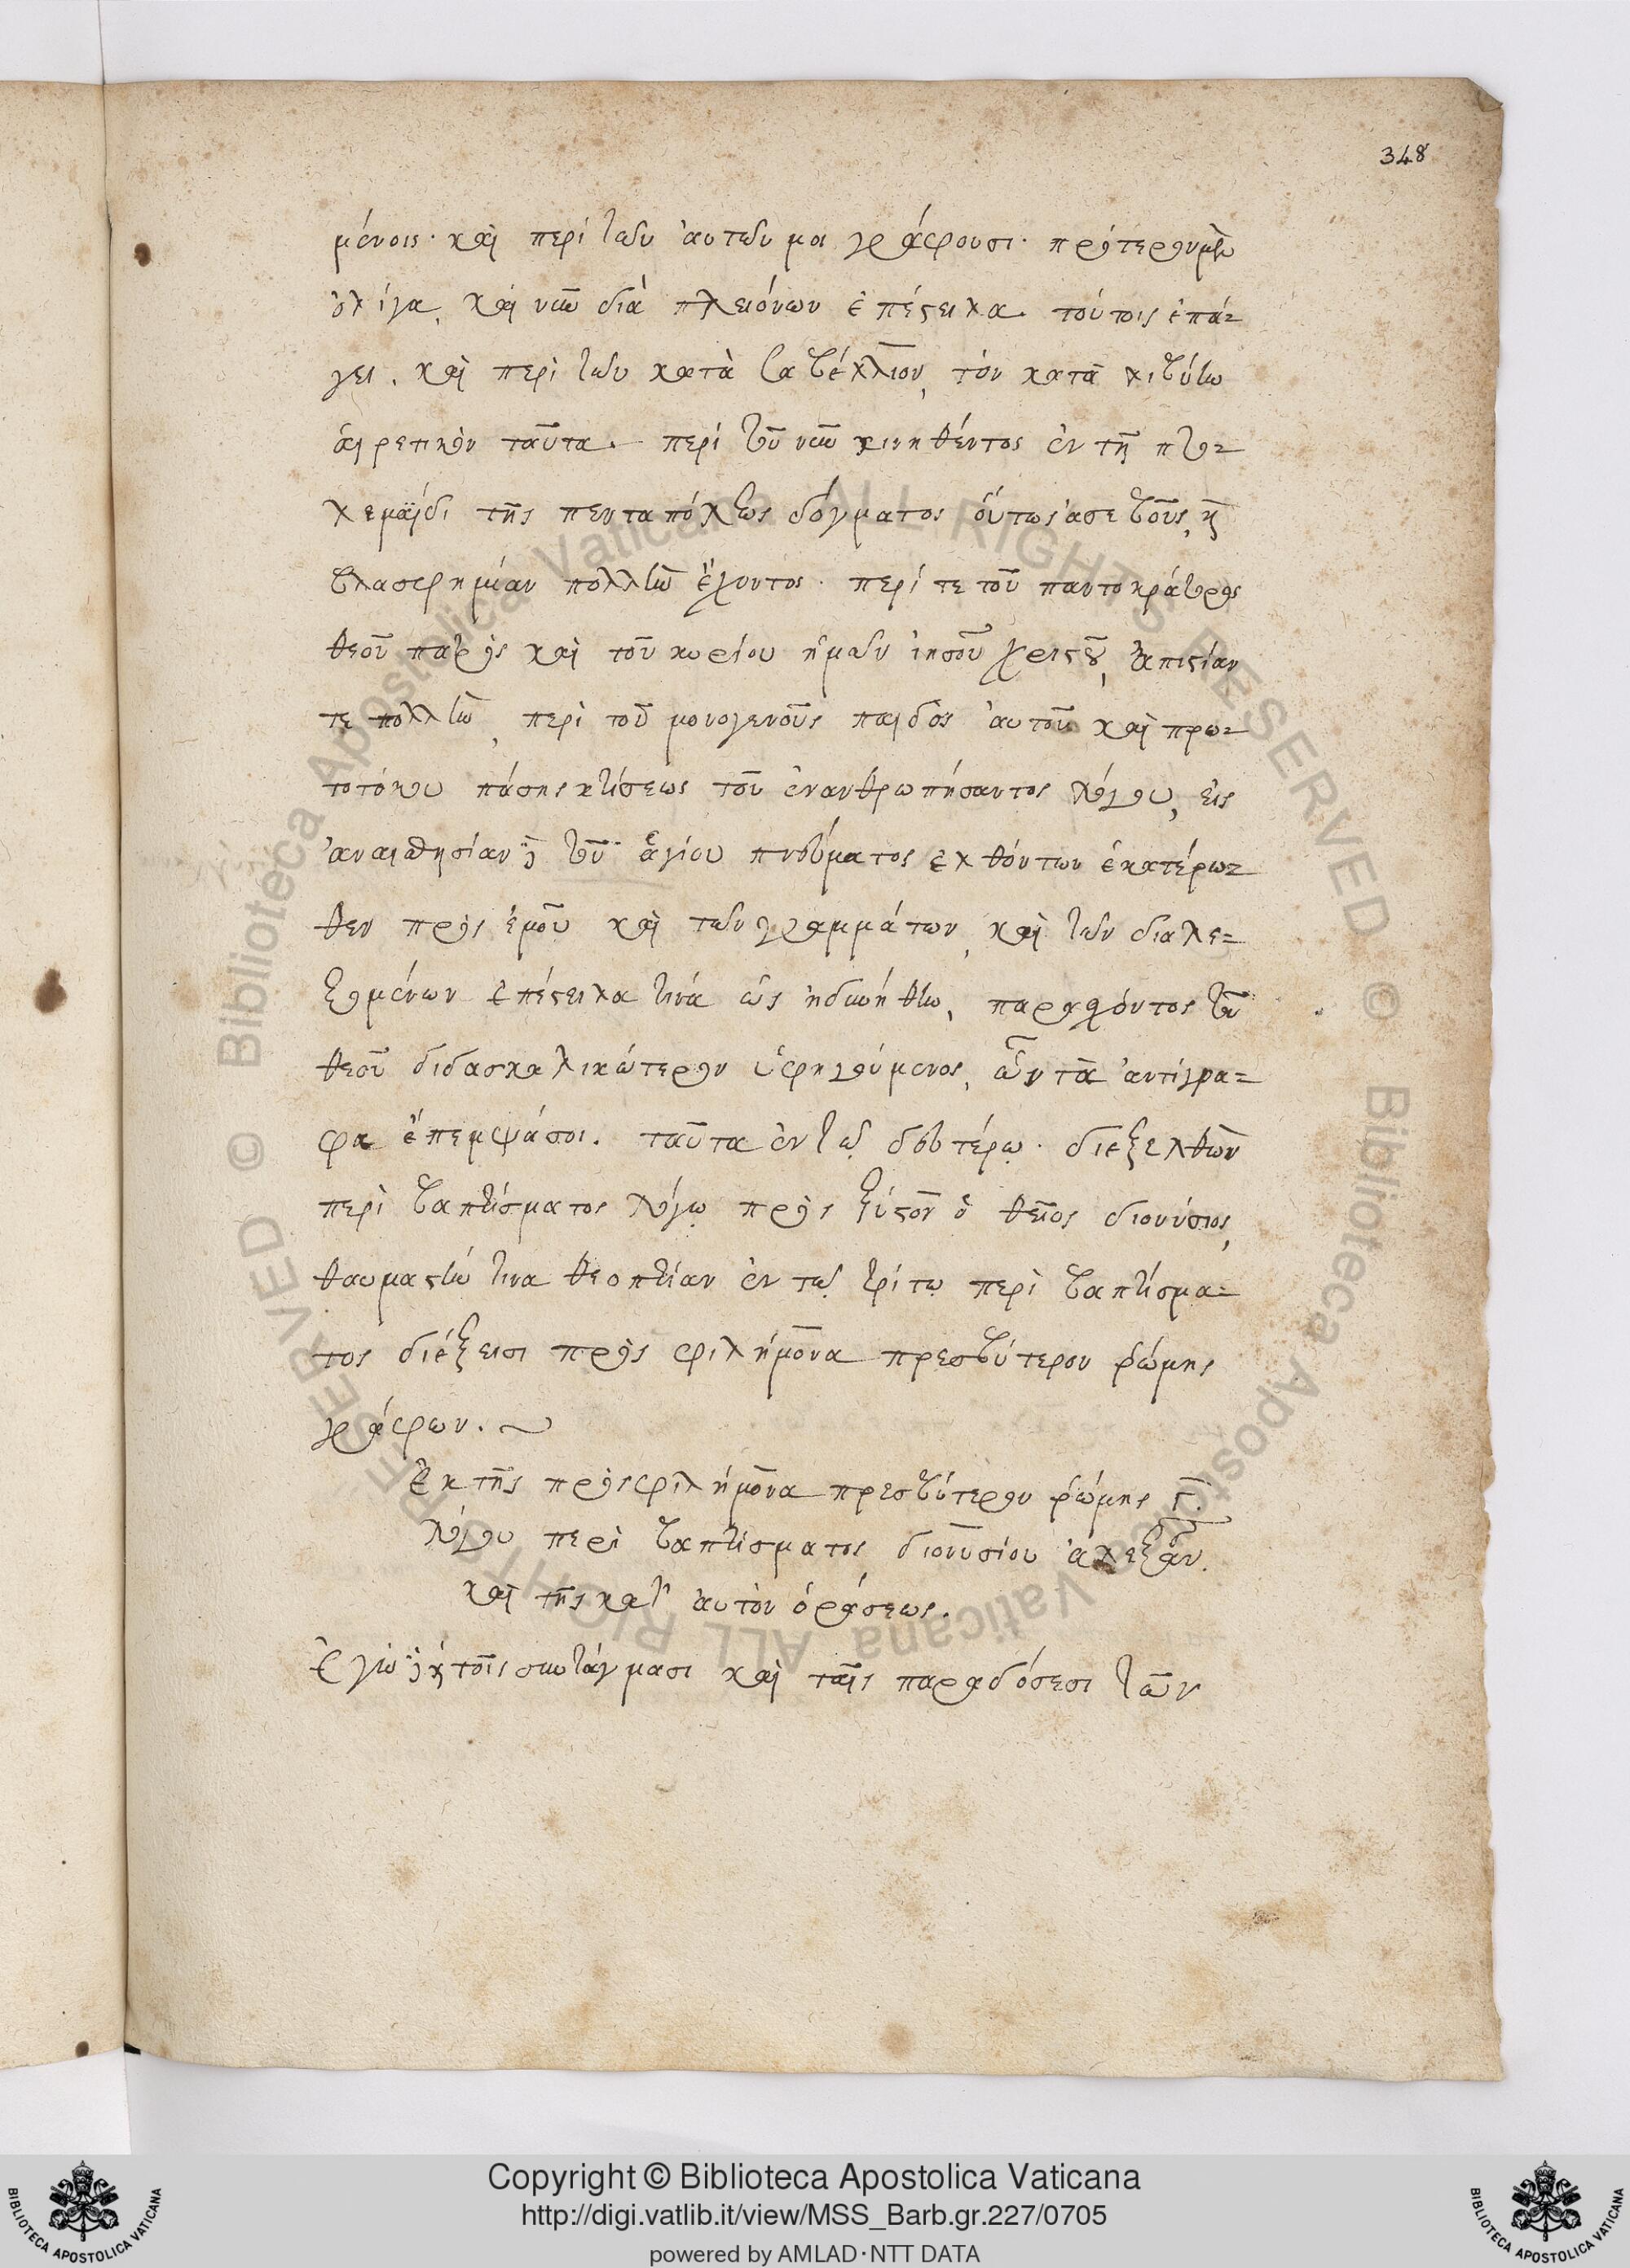 348
μένοις· καὶ περὶ τῶν αὐτῶν μοι γράφουσι· πρότερον μὲν
ὀλίγα, καὶ νῦν διὰ πλειόνων ἐπέστειλα. τούτοις ἐπά-
γει. καὶ περὶ τῶν κατὰ σαβέλλιον, τὸν κατὰ
αἱρετικὸν ταῦτα. περὶ τοῦ νῦν κινηθέντος ἐν τῇ πτο-
λεμαΐδι τῆς πενταπόλεως δόγματος ὄντως ἀσεβοῦς, καὶ
βλασφημίαν πολλὴν ἔχοντος· περί τε τοῦ παντοκράτορος
θεοῦ πατρὸς καὶ τοῦ κυρίου ἡμῶν ἰησοῦ χριστοῦ, ἀπιστίαν
τε πολλὴν, περὶ τοῦ μονογενοῦς παιδὸς αὐτοῦ καὶ πρω-
τοτόκου πάσης κτίσεως τοῦ ἐνανθρωπήσαντος λόγου, εἰς
ἀναισθησίαν δὲ τοῦ ἁγίου πνεύματος ἐλθόντων ἑκατέρω-
θεν πρὸς ἐμοῦ καὶ τῶν γραμμάτων, καὶ τῶν διαλε-
ξομένων ἐπέστειλα τινά ὡς ἠδυνήθην, παρασχόντος τοῦ
θεοῦ διδασκαλικώτερον ὑφηγούμενος, ὧν τὰ ἀντίγρα-
φα ἔπεμψά σοι. ταῦτα ἐν τῷ δευτέρῳ· διεξελθὼν
περὶ βαπτίσματος λόγῳ πρὸς ξύστον ὁ θεῖος διονύσιος,
θαυμαστήν τινα θεοπτίαν ἐν τῷ τρίτῳ περὶ βαπτίσμα-
τος διέξεισι πρὸς φιλήμονα πρεσβύτερον ῥώμης
γράφων.
Ἐκ τῆς πρὸς φιλήμονα πρεσβύτερον ῥώμης γ.
λόγου περὶ βαπτίσματος διονυσίου ἀλεξαν.
καὶ τῆς κατ' αὐτὸν ὁράσεως.
Ἐγὼ δὲ καὶ τοῖς συντάγμασι καὶ ταῖς παραδόσεσι τῶν
Copyright © Biblioteca Apostolica Vaticana
http://digi.vatlib.it/view/MSS_Barb.gr.227/0705
powered by AMLAD·NTT DATA